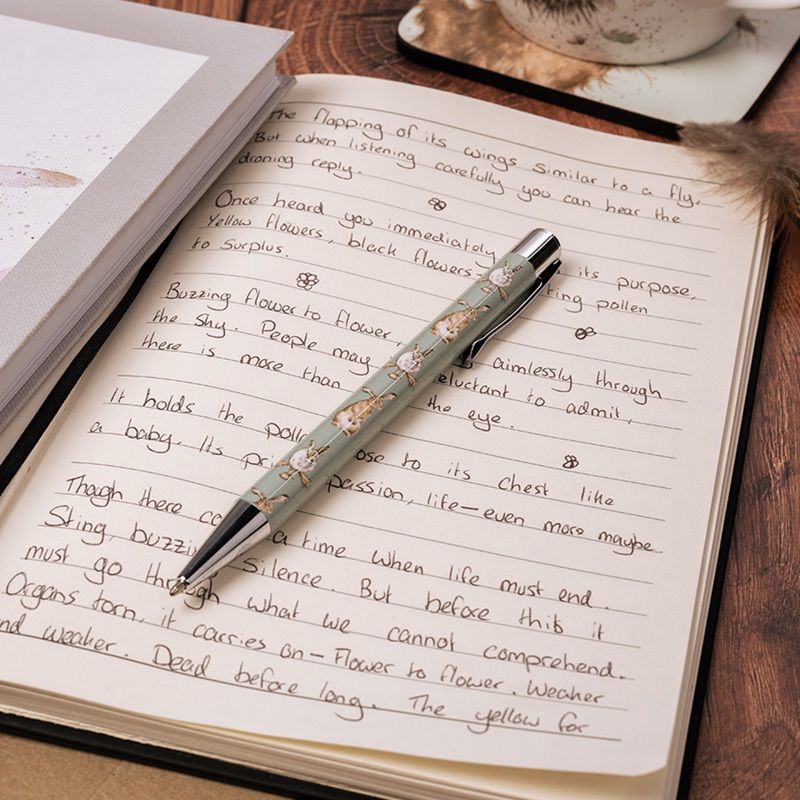 The flapping of its wings similar to a fly.
But when listening carefully you can hear the
droning reply.
Once heard you immediately its purpose,
Yellow flowers, black flowers- ting pollen
to surplus.
Buzzing flower to flower, aimlessly through
the sky. People may eluctant to admit,
there is more than the eye.
It holds the poll ose to its chest like
a baby. Its pri passion, life-even more maybe
Though there co a time when life must end.
Sting, buzzi Silence. But before this it
must go through what we cannot comprehend.
Organs torn, it carries on - Flower to flower. Weaker
nd weaker. Dead before long. The yellow for